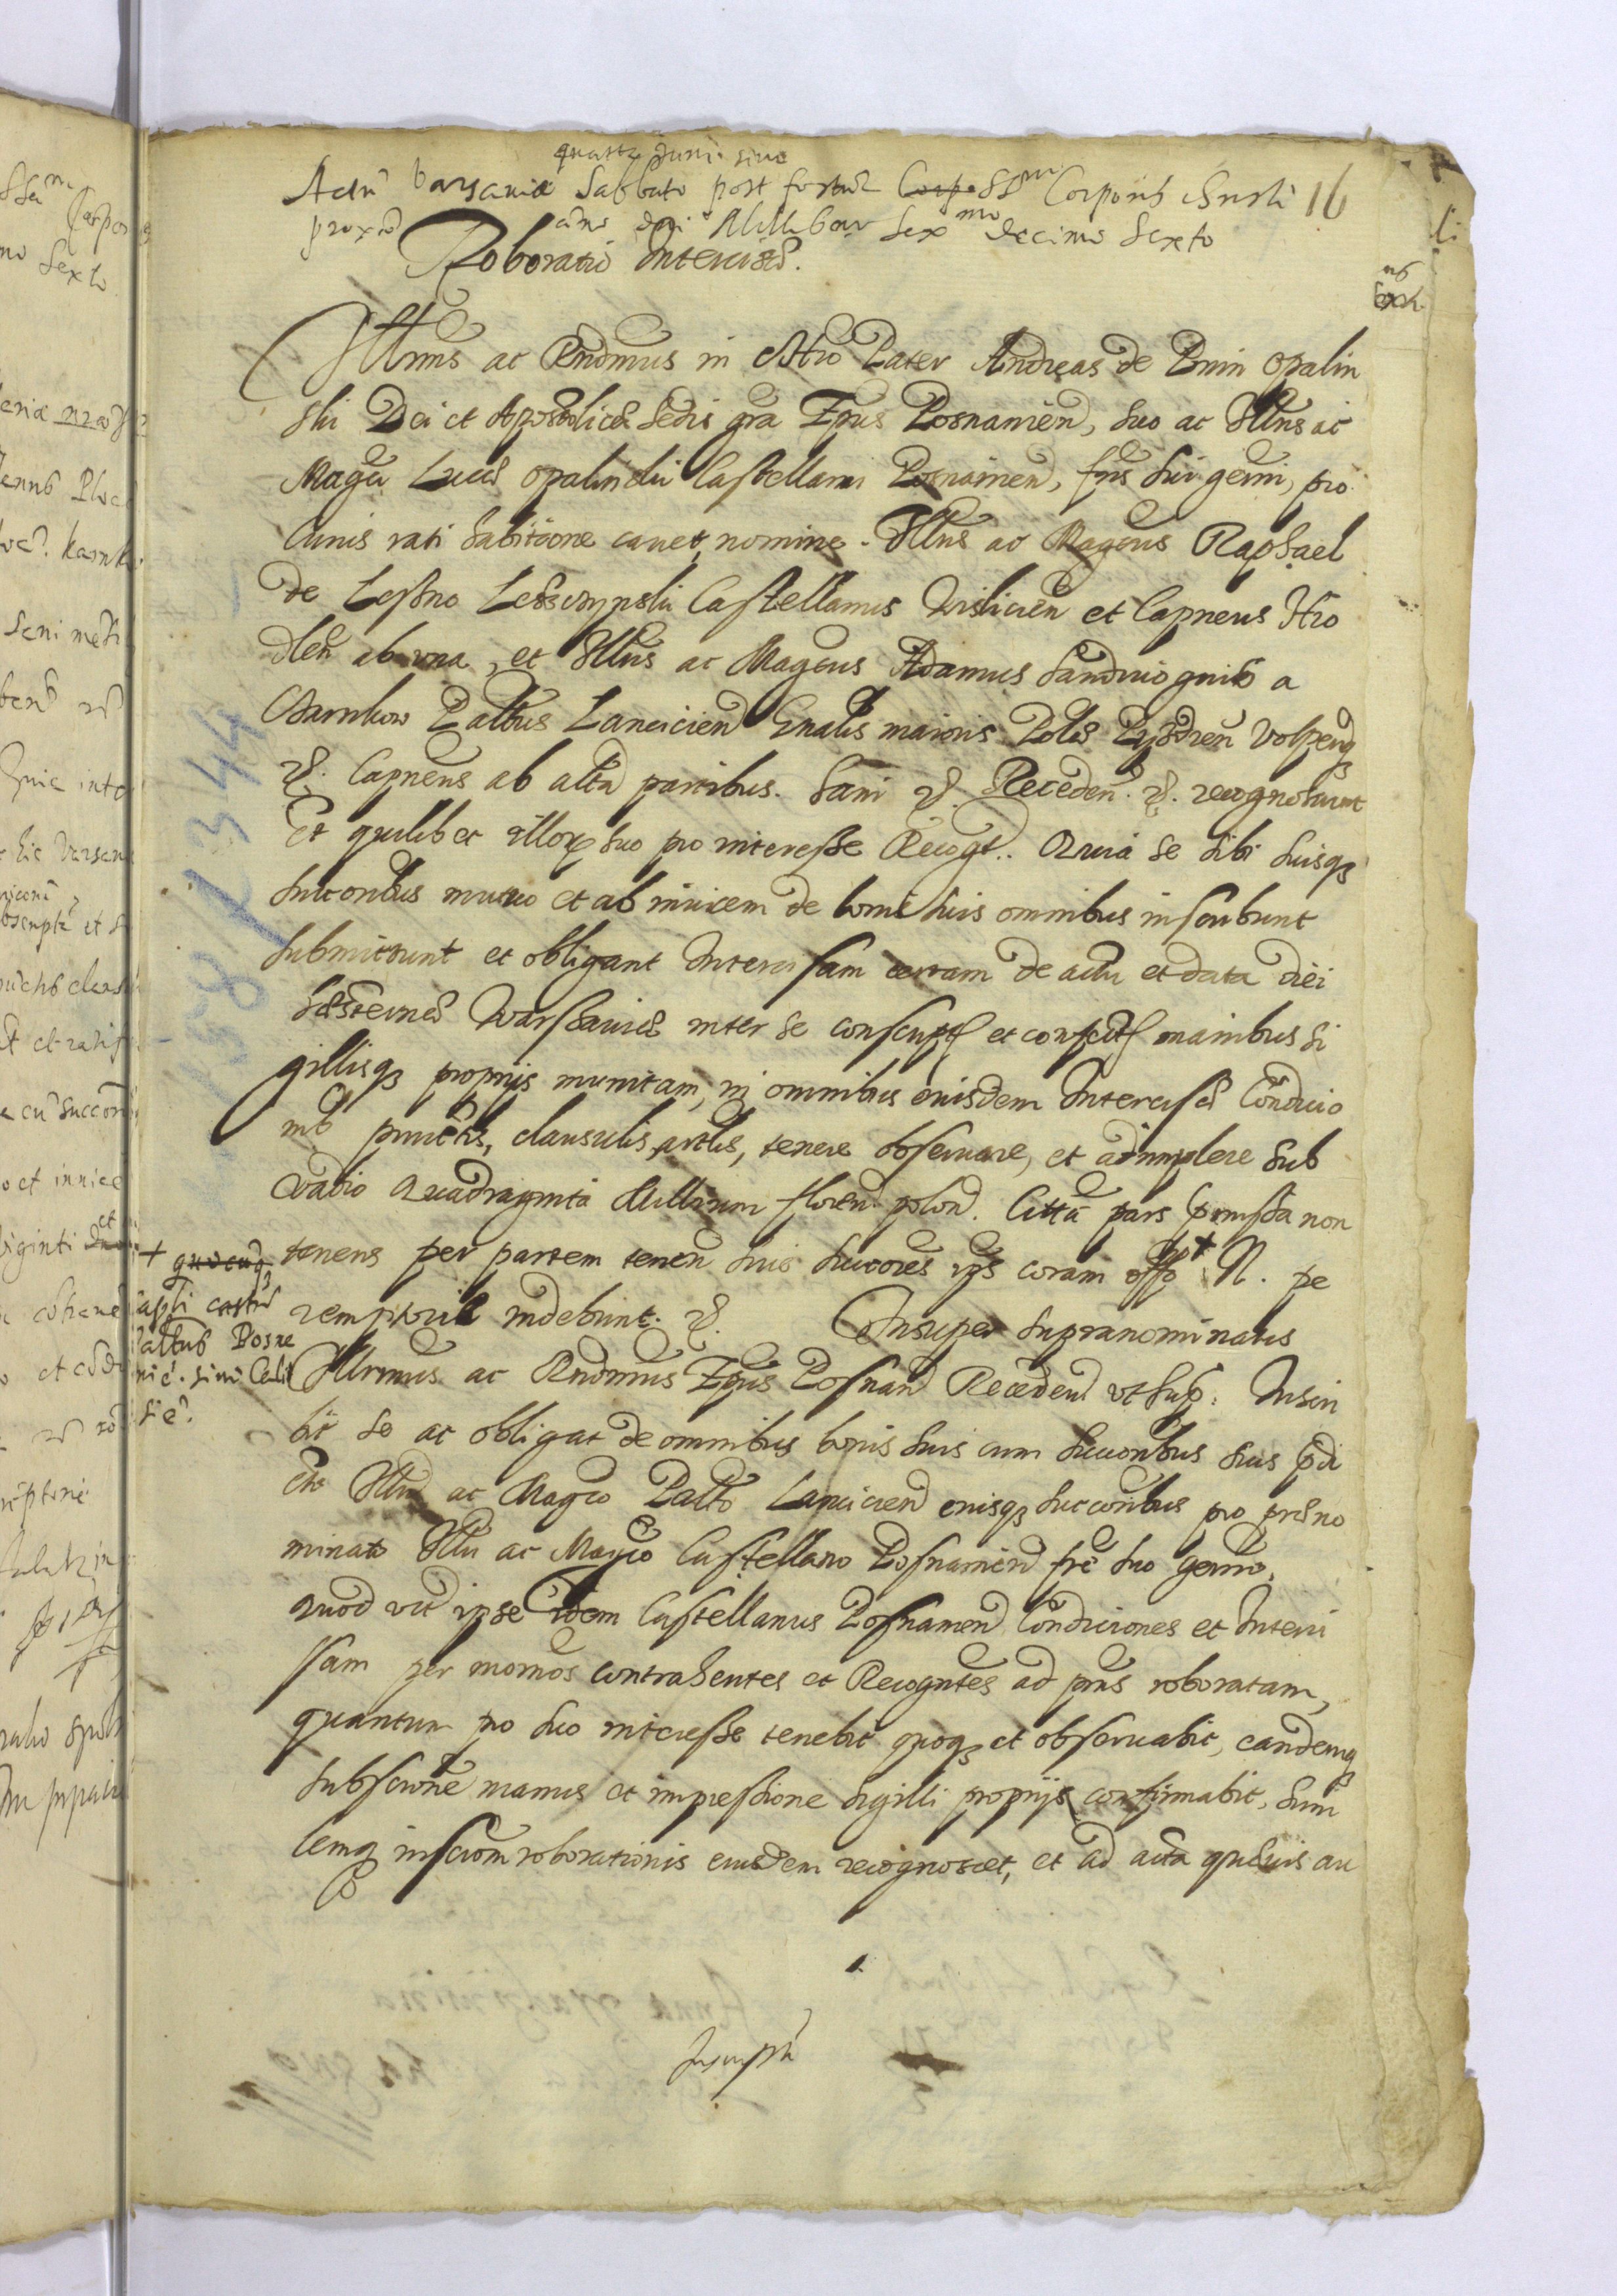 quarta Junij siue
Actũ Varsaviæ Sabbato post festũ Corpo SSmi Corporis Christi 16
proximo año dni Millesimo Sexmo decimo Sexto
Roboratio Intercisæ.
Illrmus ac Rndmus in Chro Pater Andreas de Bnin Opalin
ski Dei et Apostolicæ Sedis gra Epus Posnanien, suo ac Illris ac
Magci Lucæ Opalinski Castellani Posnanien, fris sui germi, pro
cuius rati habitione cavet, nomine. Illris ac Magcus Raphael
de Leszno Lesczynski Castellanus Wislicien et Capneus Hro
dlen ab una, et Illris ac Magcus Adamus Sandivogius a
Czarnkow Palnus Lancicien Gnalis maioris Polæ Pyzdren Volpensq
etc. Capneus ab altã partibus. Sani etc. Receden. etc. recognoverunt
Et quilibet illorum suo pro interesse Recogt. Quia se sibi suisq
succoribus mutuo et ab invicem de bonis suis omnibus inscribunt
submittunt et obligant Intercisam certam de actu et data diei
hesternæ Warsaviæ inter se conscript et confect manibus si
gillisq proprijs munitam, in omnibus eiusdem Intercisæ Condicio
nib punctis, clausulis, artlis, tenere observare, et adimplere sub
vadio Quadraginta Millium floren polon. Citta pars præmissa non
tenens per partem tenen suis succores ips coram offo + N. pe
+ quocunq
aspli castrs
Palnus Posna
nie. sive Cali
sie.
remptorie indebunt. etc. Insuper supranominatus
Illrmus ac Rndmus Epus Posnan Receden ut sup: Inscri
bit se ac obligat de omnibus bonis suis cum succoribus suis pdi
cto Illri ac Magco Palno Lancicien eiusq succoribus pro præno
minato Illri ac Magco Castellano Posnanien fre suo germo,
quod vet ipse idem Castellanus Posnanien Condiciones et Interci
sam per momos contrahentes et Recogntes ad pns roboratam,
quantum pro suo interesse tenebit quoq et observabit, eandemq
subscrone manus et impressione sigilli proprijs confirmabit, simi
lemq inscrom roborationis eiusdem recognoscet, et ad acta quævis au